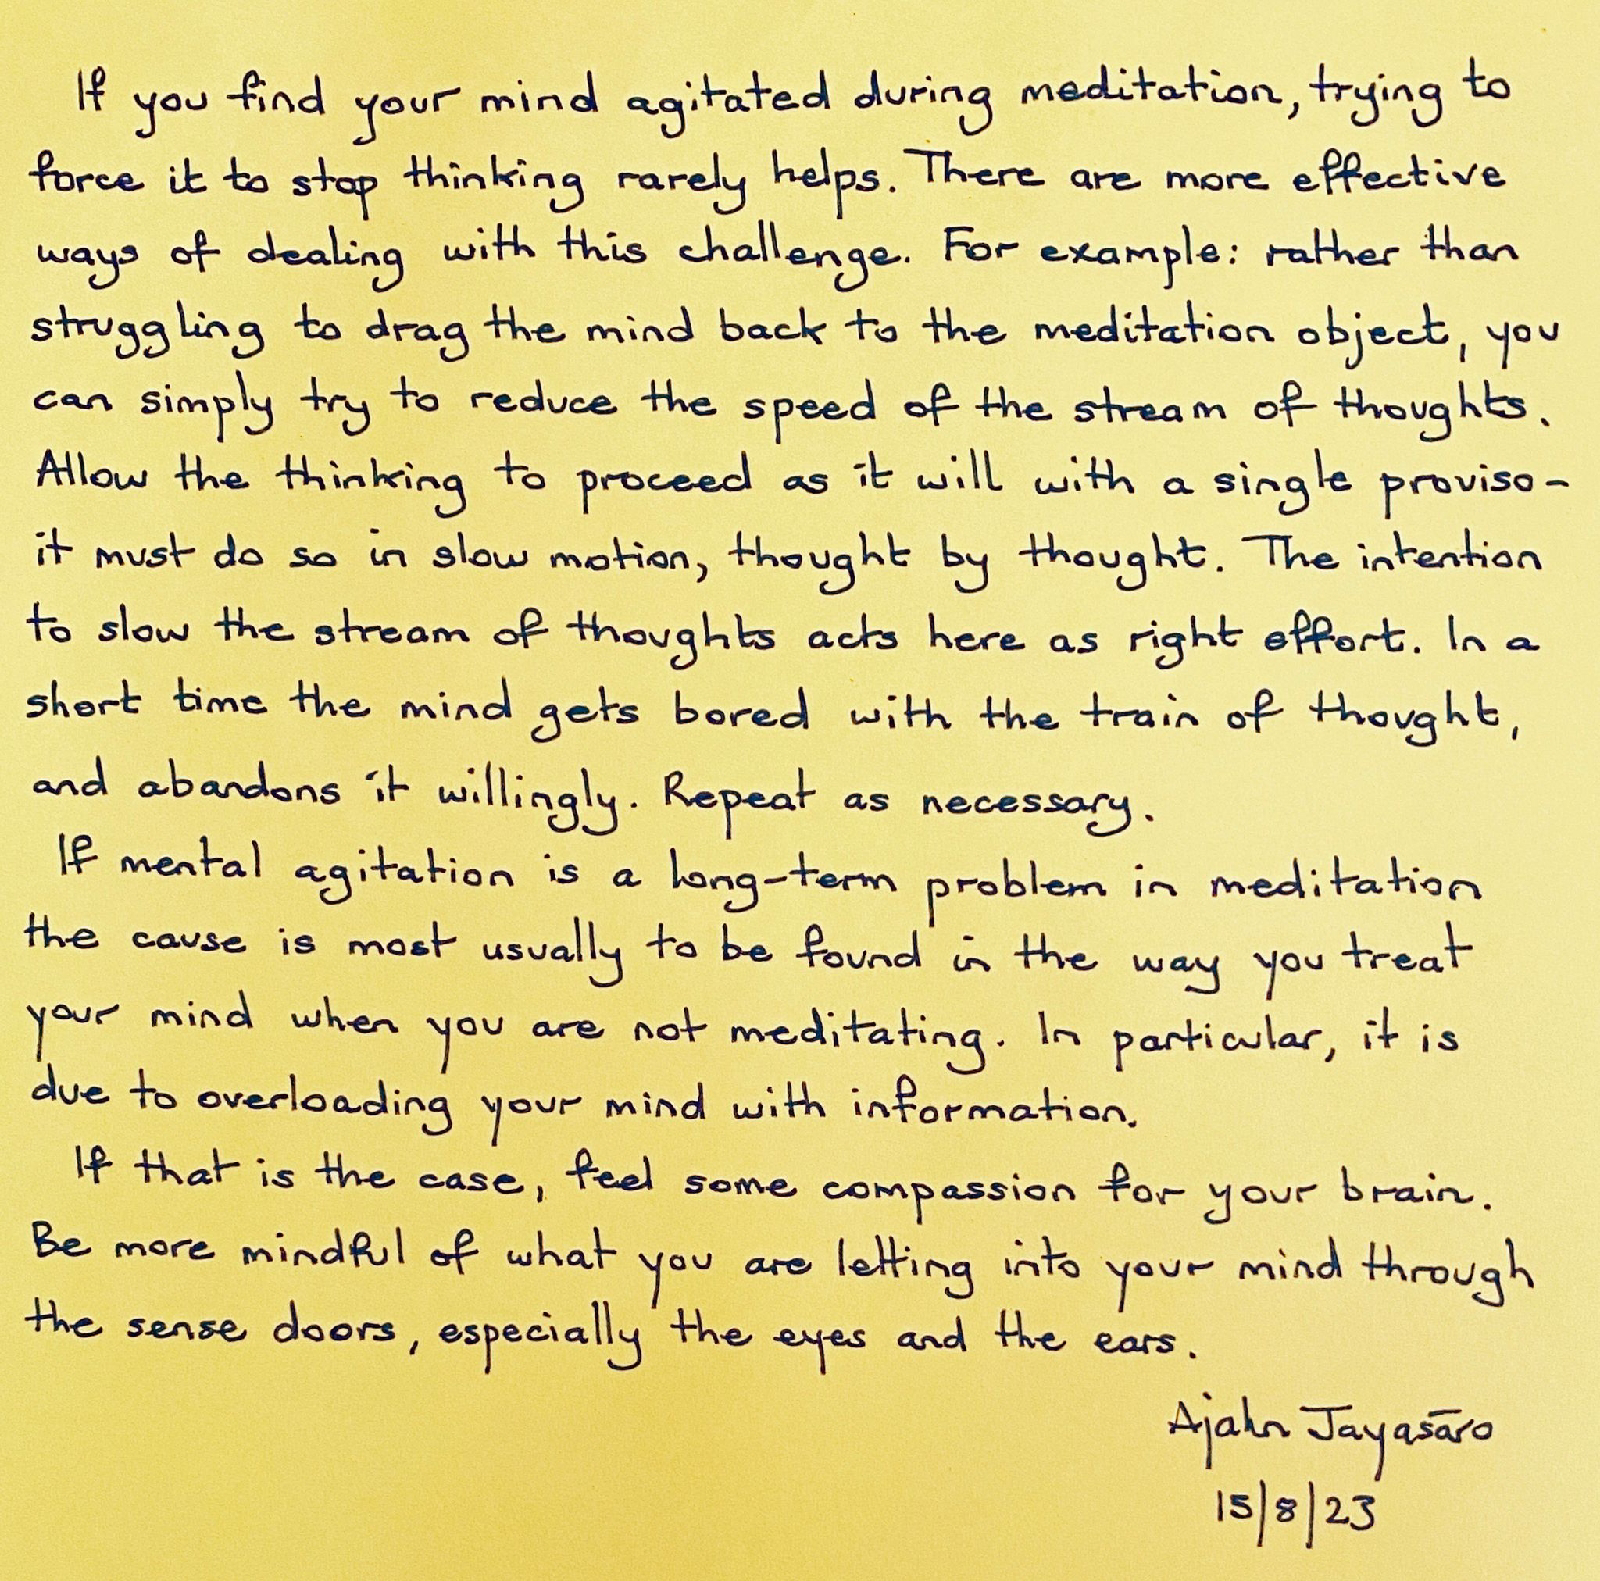 If you find your mind agitated during meditation, trying to
force it to stop thinking rarely helps. There are more effective
ways of dealing with this challenge. For example: rather than
struggling to drag the mind back to the meditation object, you
can simply try to reduce the speed of the stream of thoughts.
Allow the thinking to proceed as it will with a single proviso-
it must do so in slow motion, thought by thought. The intention
to slow the stream of thoughts acts here as right effort. In a
short time the mind gets bored with the train of thought,
and abandons it willingly. Repeat as necessary.
If mental agitation is a long-term problem in meditation
the cause is most usually to be found in the way you treat
your mind when you are not meditating. In particular, it is
due to overloading your mind with information.
If that is the case, feel some compassion for your brain.
Be more mindful of what you are letting into your mind through
the sense doors, especially the eyes and the ears.
Ajahn Jayasāro
15/8/23